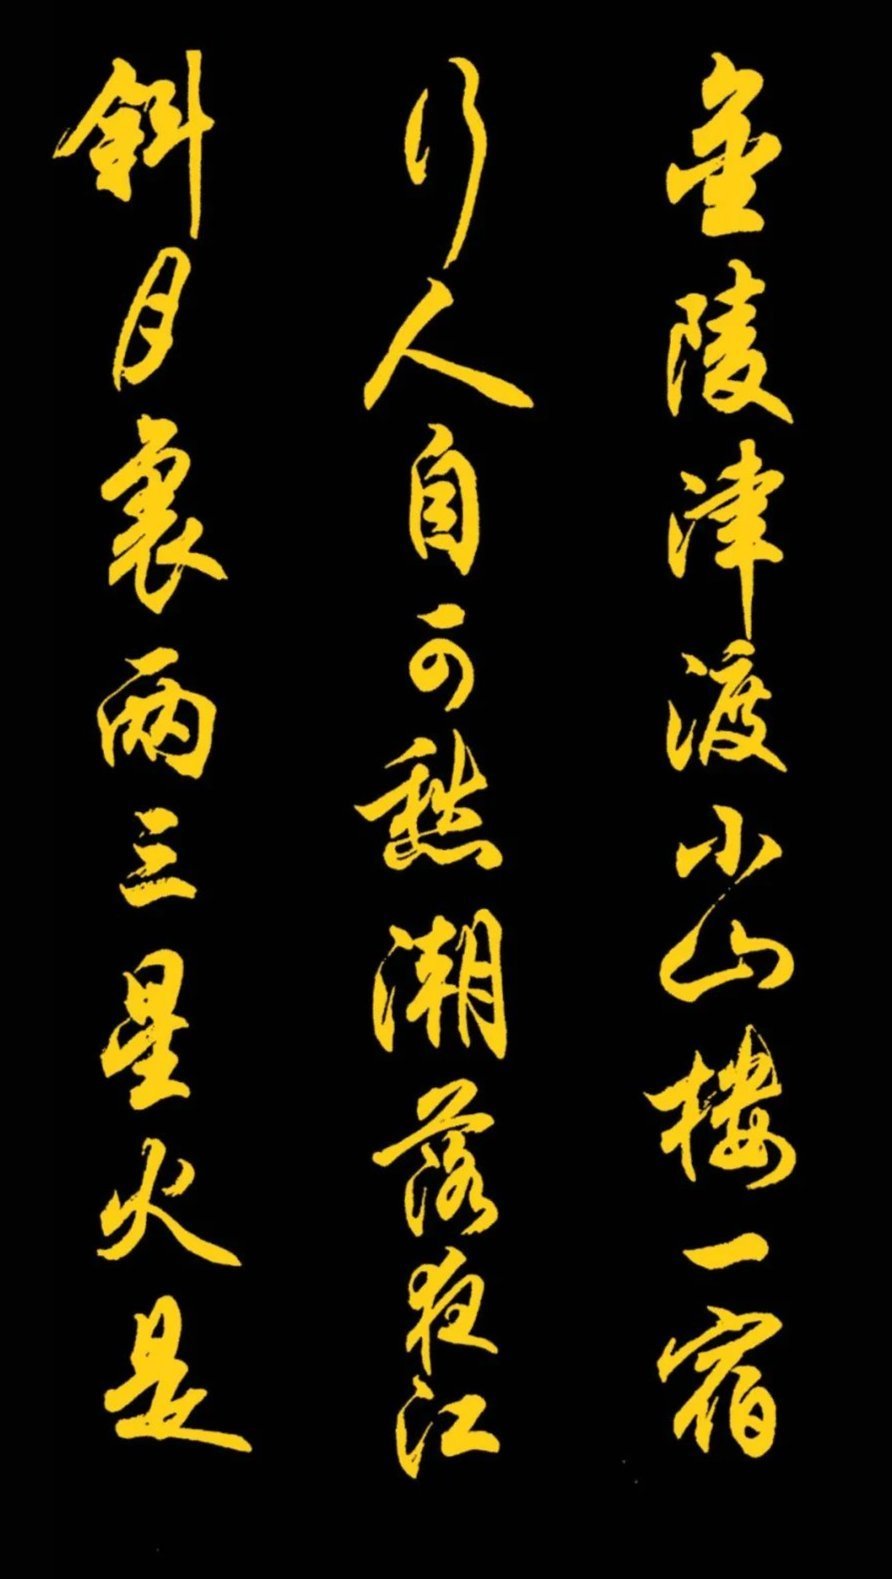 金陵津渡小山楼一宿
行人自可愁潮落夜江
斜月裏两三星火是